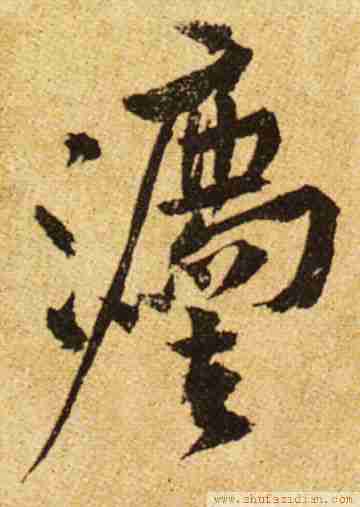 灋
www.shufazidian.com